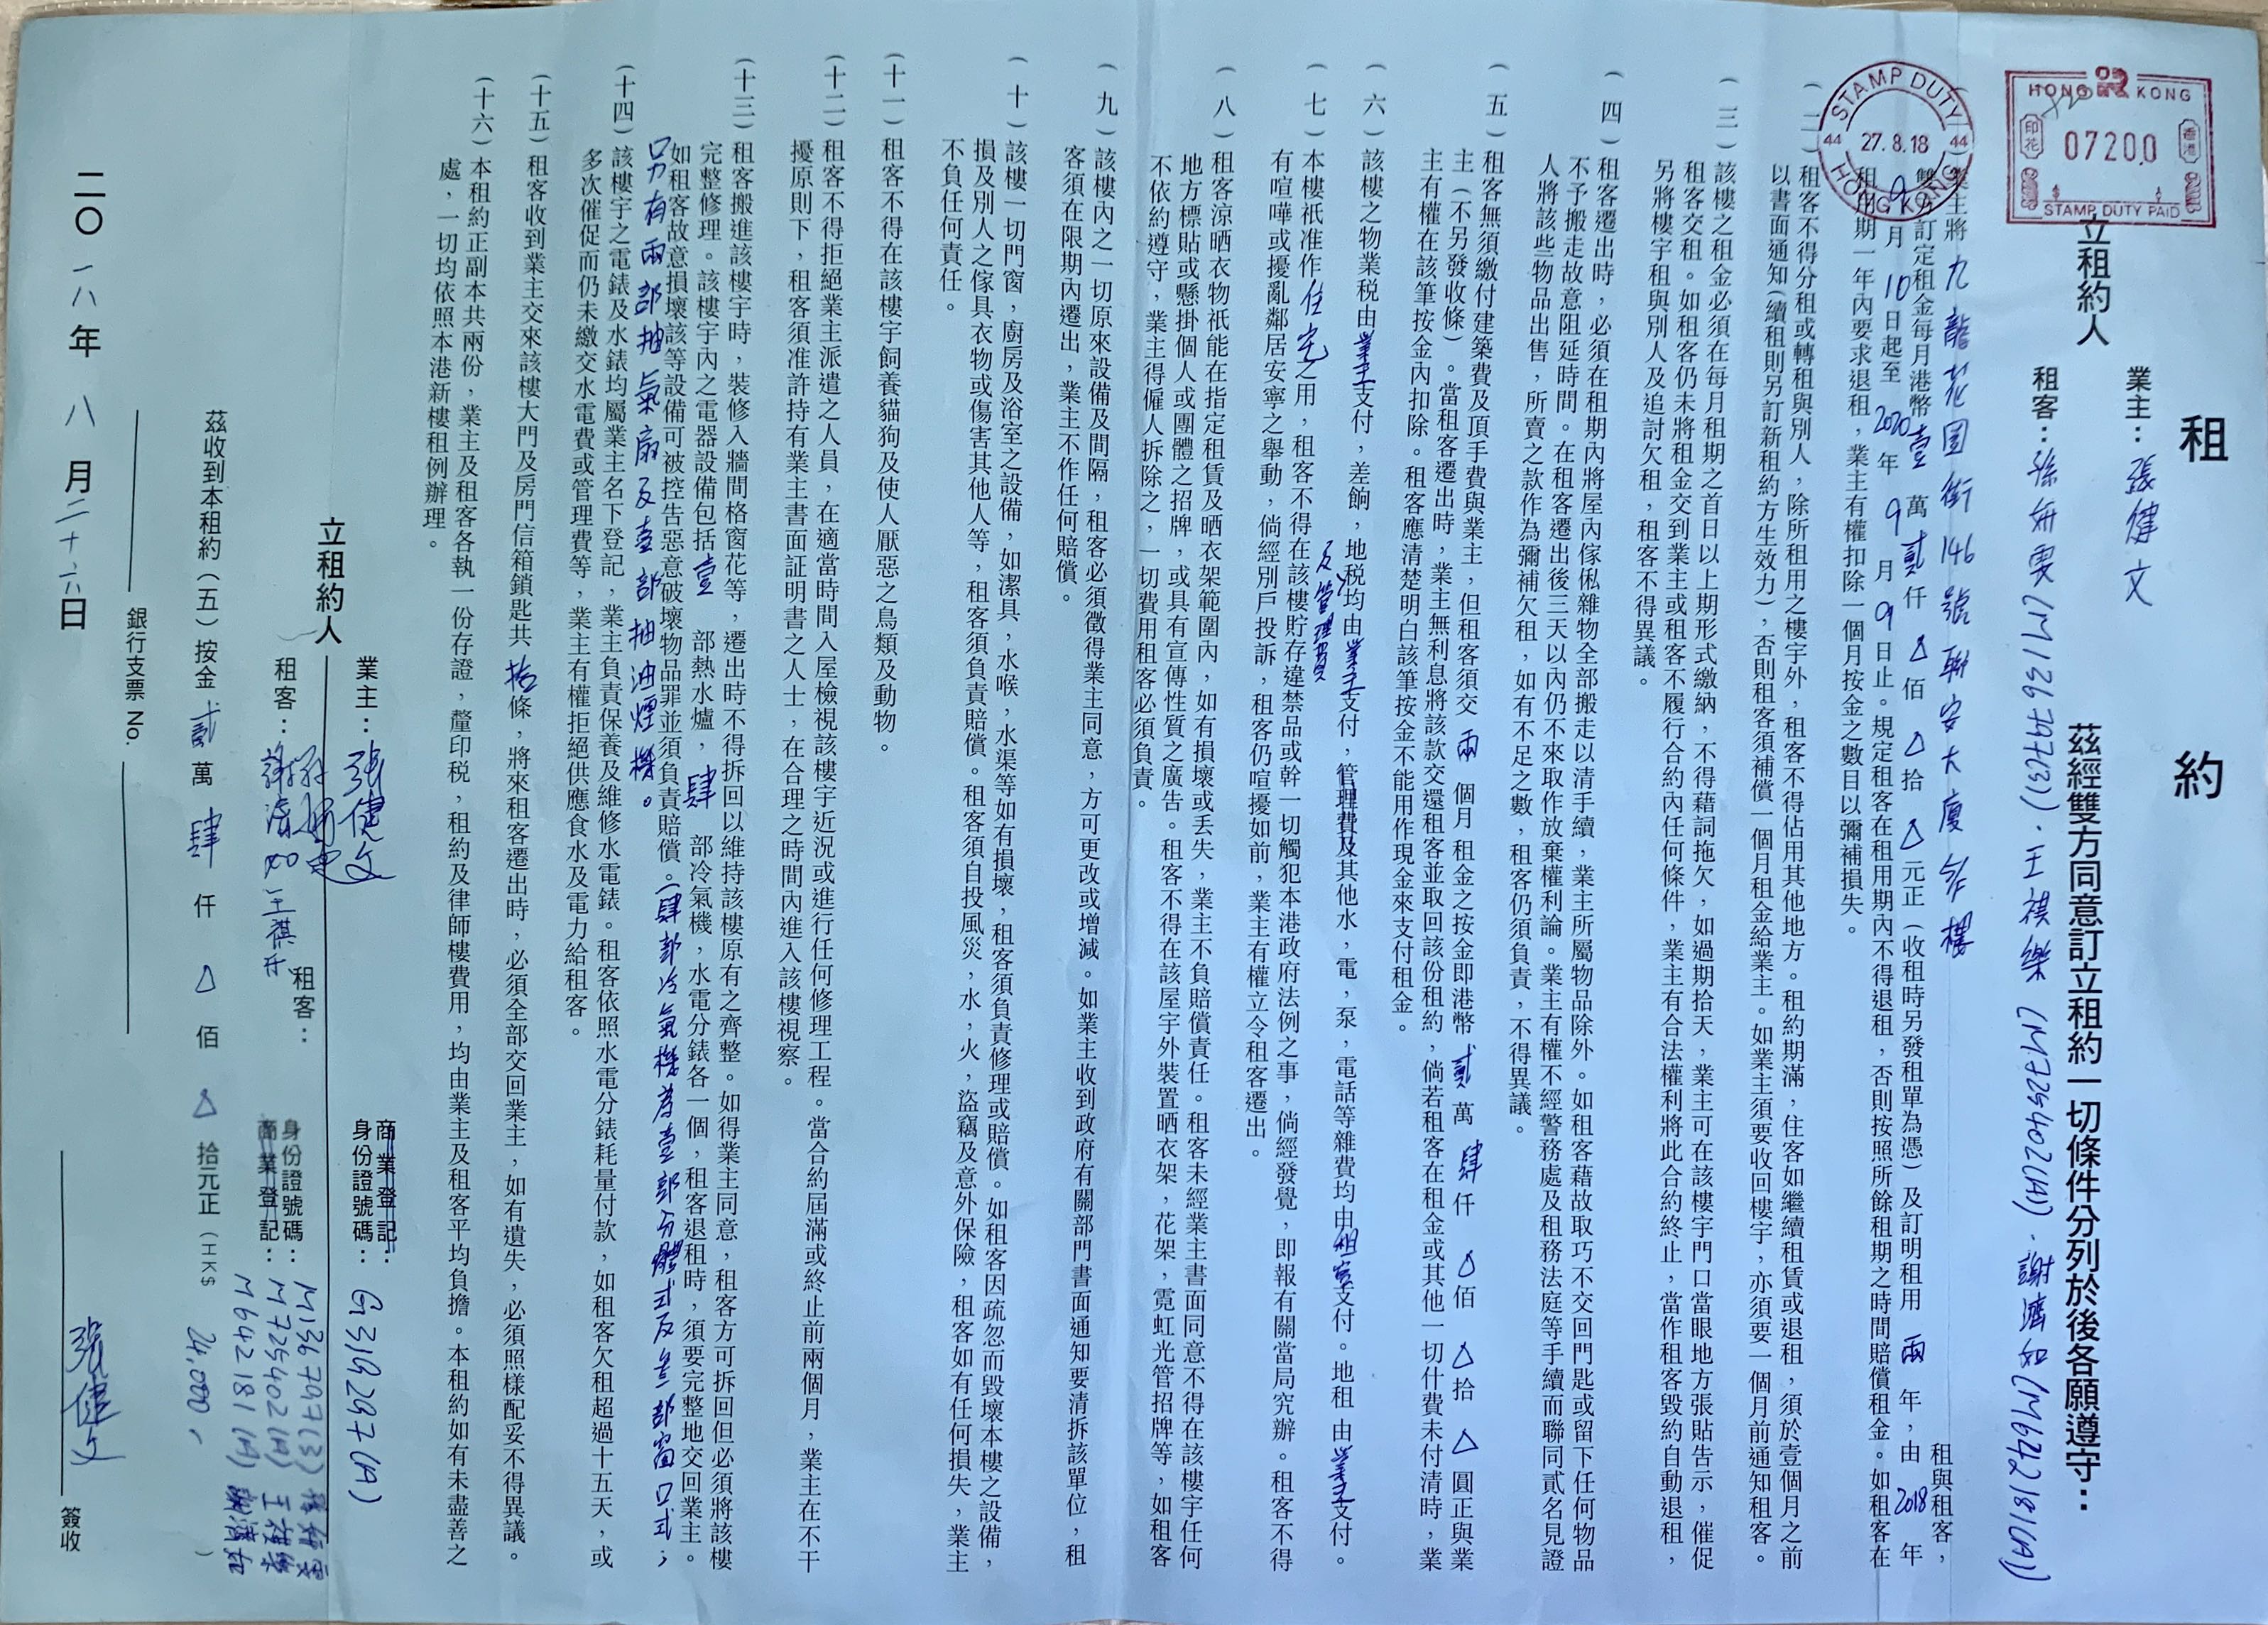 租 約
HONG KONG
印花
香港
0720.0
STAMP DUTY PAID
STAMP DUTY
44 27.8.18 44
HONG KONG
立租約人
業主：張健文
租客：
(M136797(3))、王祺樂 (M725402(A))、謝濟如 (M642181(A))
茲經雙方同意訂立租約一切條件分列於後各願遵守：
業主將九龍花園街146號聯安大廈 樓 租與租客，
雙方訂定租金每月港幣壹萬貳仟△佰△拾△元正（收租時另發租單為憑）及訂明租用兩年，由2018年
9月10日起至2020年9月9日止。規定租客在租用期內不得退租，否則按照所餘租期之時間賠償租金。如租客在
租期一年內要求退租，業主有權扣除一個月按金之數目以彌補損失。
（二）租客不得分租或轉租與別人，除所租用之樓宇外，租客不得佔用其他地方。租約期滿，住客如繼續租賃或退租，須於壹個月之前
以書面通知（續租則另訂新租約方生效力），否則租客須補償一個月租金給業主。如業主須要收回樓宇，亦須要一個月前通知租客。
（三）該樓之租金必須在每月租期之首日以上期形式繳納，不得藉詞拖欠，如過期拾天，業主可在該樓宇門口當眼地方張貼告示，催促
租客交租。如租客仍未將租金交到業主或租客不履行合約內任何條件，業主有合法權利將此合約終止，當作租客毀約自動退租，
另將樓宇租與別人及追討欠租，租客不得異議。
（四）租客遷出時，必須在租期內將屋內傢俬雜物全部搬走以清手續，業主所屬物品除外。如租客藉故取巧不交回門匙或留下任何物品
不予搬走故意阻延時間。在租客遷出後三天以內仍不來取作放棄權利論。業主有權不經警務處及租務法庭等手續而聯同貳名見證
人將該些物品出售，所賣之款作為彌補欠租，如有不足之數，租客仍須負責，不得異議。
（五）租客無須繳付建築費及頂手費與業主，但租客須交兩個月租金之按金即港幣貳萬肆仟△佰△拾△圓正與業
主（不另發收條）。當租客遷出時，業主無利息將該款交還租客並取回該份租約，倘若租客在租金或其他一切什費未付清時，業
主有權在該筆按金內扣除。租客應清楚明白該筆按金不能用作現金來支付租金。
（六）該樓之物業税由業主支付，差餉，地税均由業主支付，管理費及其他水，電，泵，電話等雜費均由租客支付。地租由業主支付。
及管理費
（七）本樓衹准作住宅之用，租客不得在該樓貯存違禁品或幹一切觸犯本港政府法例之事，倘經發覺，即報有關當局究辦。租客不得
有喧嘩或擾亂鄰居安寧之舉動，倘經別戶投訴，租客仍喧擾如前，業主有權立令租客遷出。
（八）租客涼晒衣物衹能在指定租賃及晒衣架範圍內，如有損壞或丟失，業主不負賠償責任。租客未經業主書面同意不得在該樓宇任何
地方標貼或懸掛個人或團體之招牌，或具有宣傳性質之廣告。租客不得在該屋宇外裝置晒衣架，花架，霓虹光管招牌等，如租客
不依約遵守，業主得僱人拆除之，一切費用租客必須負責。
（九）該樓內之一切原來設備及間隔，租客必須徵得業主同意，方可更改或增減。如業主收到政府有關部門書面通知要清拆該單位，租
客須在限期內遷出，業主不作任何賠償。
（十）該樓一切門窗，廚房及浴室之設備，如潔具，水喉，水渠等如有損壞，租客須負責修理或賠償。如租客因疏忽而毀壞本樓之設備，
損及別人之傢具衣物或傷害其他人等，租客須負責賠償。租客須自投風災，水，火，盜竊及意外保險，租客如有任何損失，業主
不負任何責任。
（十一）租客不得在該樓宇飼養貓狗及使人厭惡之鳥類及動物。
（十二）租客不得拒絕業主派遣之人員，在適當時間入屋檢視該樓宇近況或進行任何修理工程。當合約屆滿或終止前兩個月，業主在不干
擾原則下，租客須准許持有業主書面証明書之人士，在合理之時間內進入該樓視察。
（十三）租客搬進該樓宇時，裝修入牆間格窗花等，遷出時不得拆回以維持該樓原有之齊整。如得業主同意，租客方可拆回但必須將該樓
完整修理。該樓宇內之電器設備包括壹部熱水爐，肆部冷氣機，水電分錶各一個，租客退租時，須要完整地交回業主。
如租客故意損壞該等設備可被控告惡意破壞物品罪並須負責賠償。（肆部冷氣機為壹部分體式及叁部窗口式；
另有兩部抽氣扇及壹部抽油煙機。
（十四）該樓宇之電錶及水錶均屬業主名下登記，業主負責保養及維修水電錶。租客依照水電分錶耗量付款，如租客欠租超過十五天，或
多次催促而仍未繳交水電費或管理費等，業主有權拒絕供應食水及電力給租客。
（十五）租客收到業主交來該樓大門及房門信箱鎖匙共拾條，將來租客遷出時，必須全部交回業主，如有遺失，必須照樣配妥不得異議。
（十六）本租約正副本共兩份，業主及租客各執一份存證，釐印税，租約及律師樓費用，均由業主及租客平均負擔。本租約如有未盡善之
處，一切均依照本港新樓租例辦理。
立租約人
業主：張健文
商業登記：
身份證號碼：G319297(A)
租客：謝濟如 王祺樂
租客：
身份證號碼：
商業登記：
M136797(3)
M725402(A) 王祺樂
M642181(A) 謝濟如
茲收到本租約（五）按金貳萬肆仟△佰△拾元正（HK$ 24,000，）
銀行支票 No.
張健文 簽收
二〇一八年八月二十六日